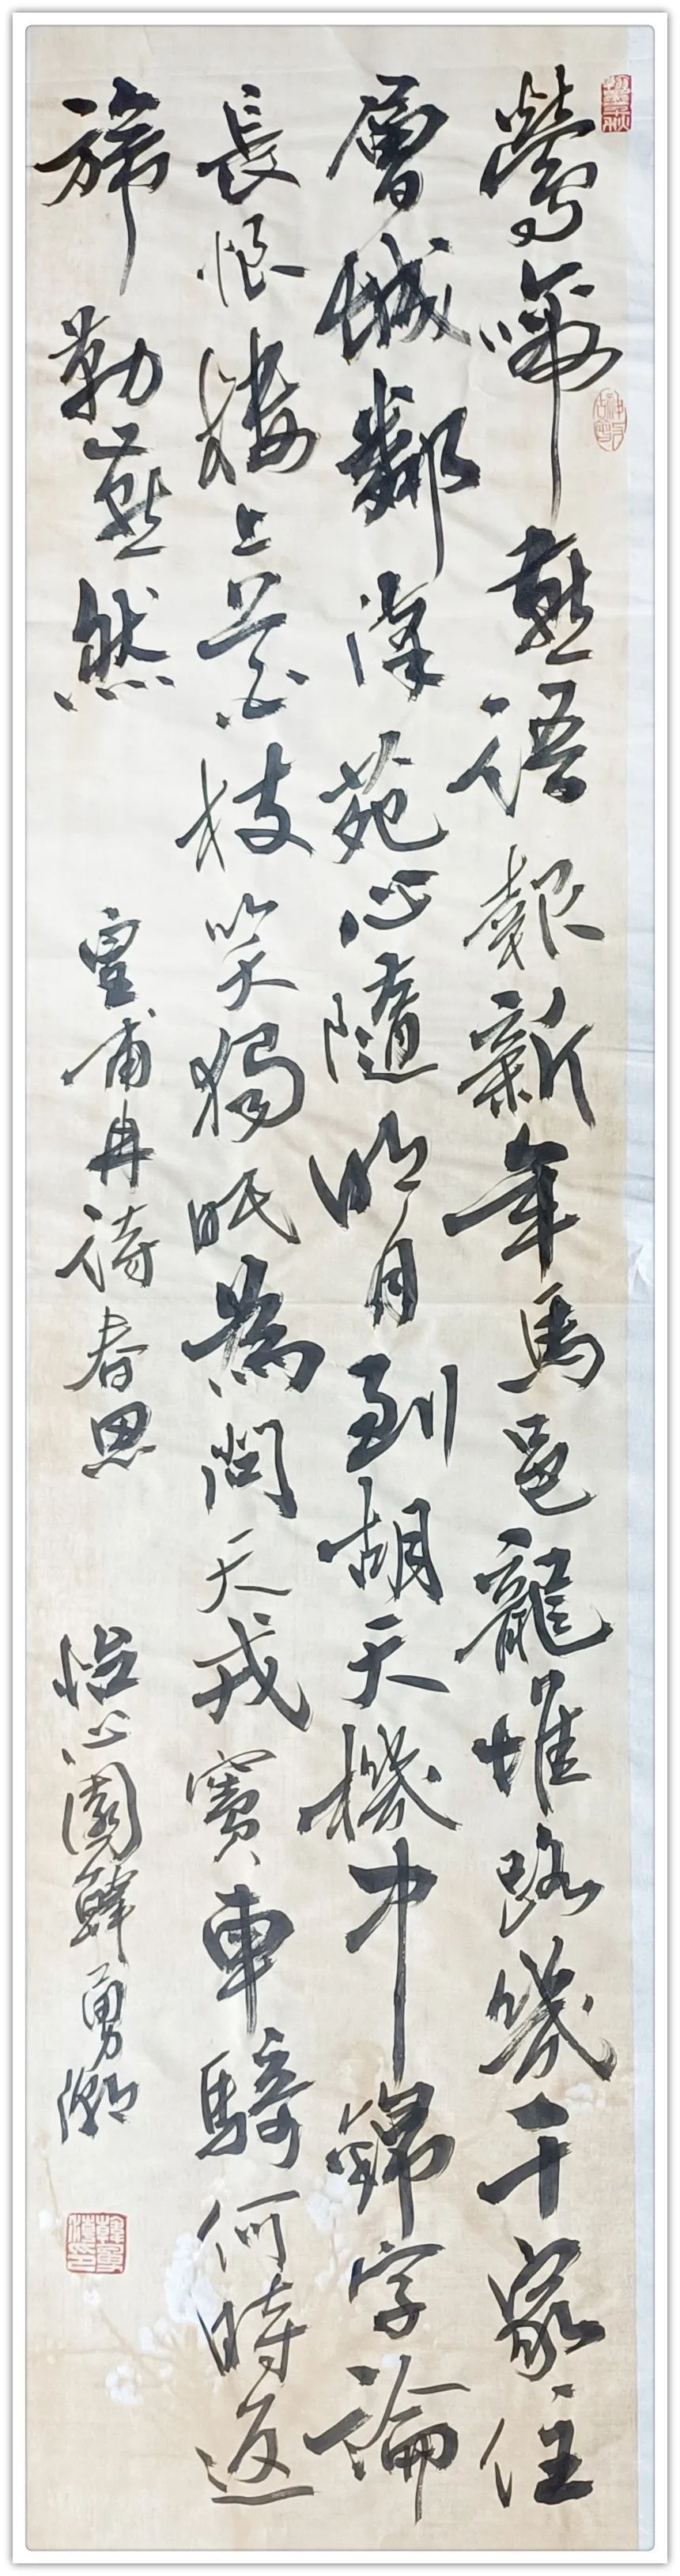 鶯啼燕語報新年馬邑龍堆路幾千家住
層城鄰漢苑心隨明月到胡天機中錦字論
長恨樓上花枝笑獨眠為問天戎竇車騎何時返
旆勒燕然 皇甫冉詩春思 怡心園韓勇